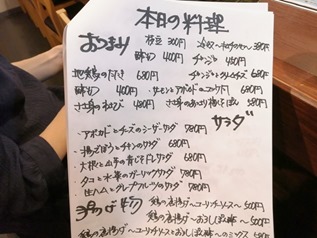 本日の料理
おつまみ 枝豆 300円 冷奴 380円
酢切 400円 チャンジャ 450円
地鶏のたたき 680円 チャンジャとクリームチーズ 680円
酢切 400円 サーモンとアボカドのユッケ 680円
ささ身のわさび 480円 ささ身のあぶり梅しそ 580円
サラダ
・アボカドとチーズのシーザーサラダ 780円
・揚ごぼうとチキンのサラダ 680円
・大根と山芋の青じそドレサラダ 680円
・タコと水菜のガーリックサラダ 780円
・生ハムとグレープフルーツのサラダ 780円
揚げ物 鶏の唐揚げ 〜ユーリンチソース〜 500円
鶏の唐揚げ 〜おろしポン酢〜 500円
鶏の唐揚げ 〜ユーリンチソースとおろしポン酢〜のミックス